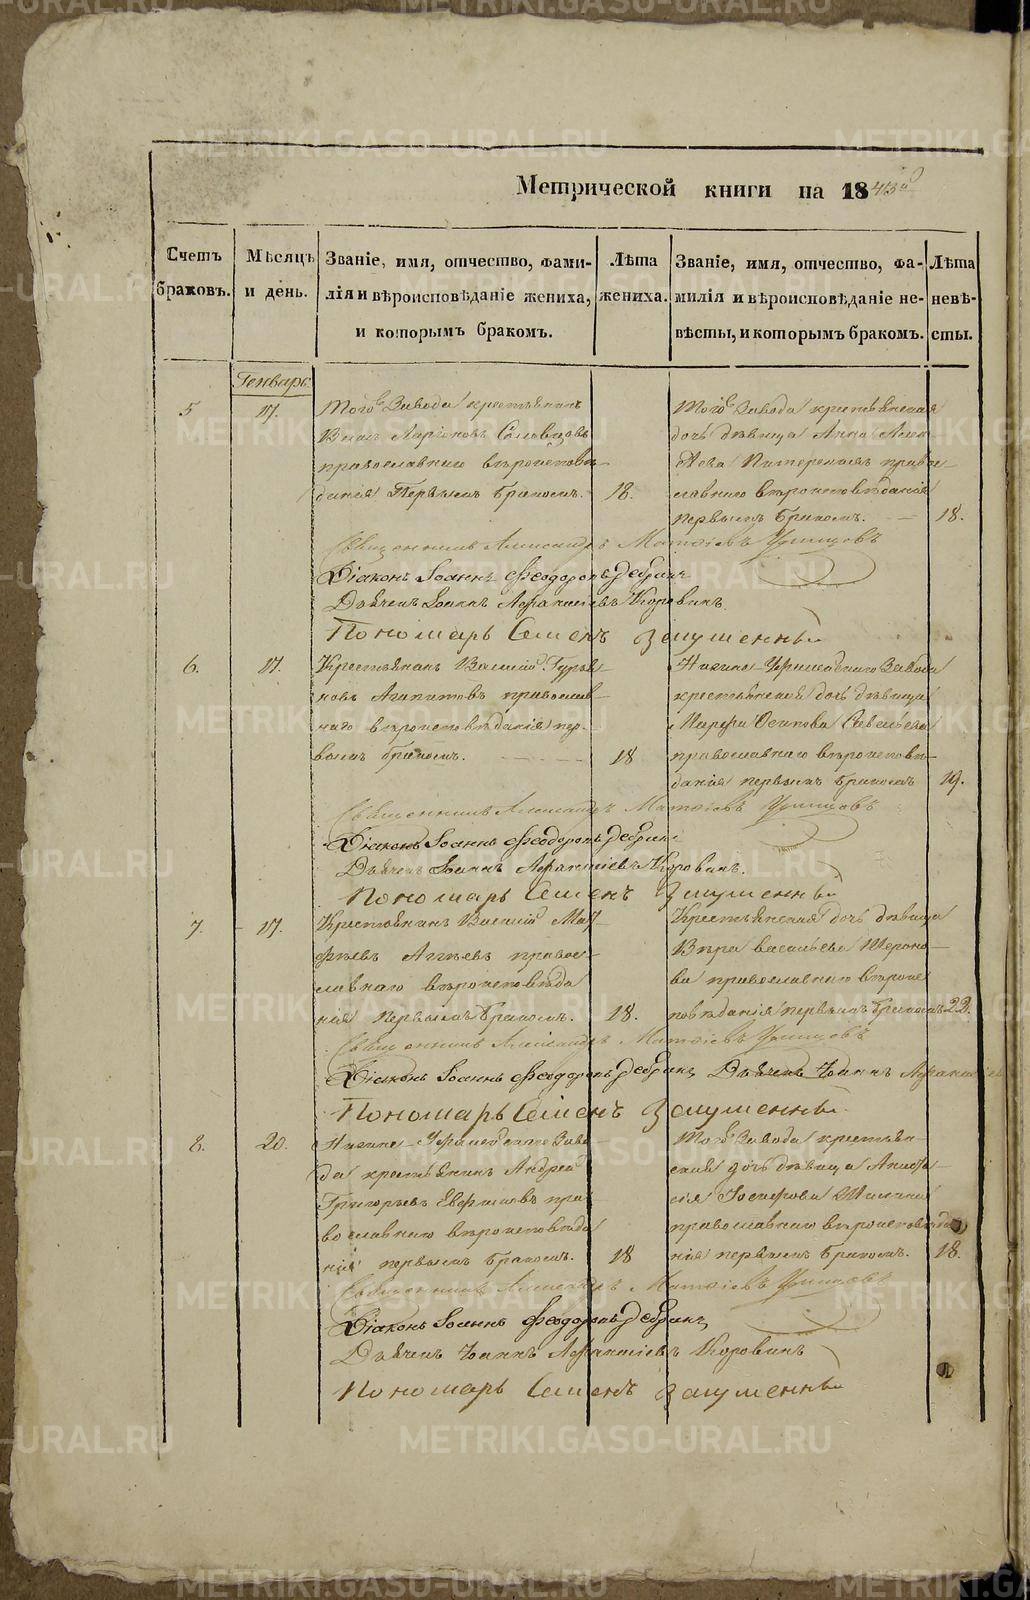 Метрической книги на 1843й
Счетъ браковъ.
Мѣсяцъ и день.
Званіе, имя, отчество, фами-
лія и вѣроисповѣданіе жениха,
и которымъ бракомъ.
Лѣта жениха.
Званіе, имя, отчество, фа-
милія и вѣроисповѣданіе не-
вѣсты, и которымъ бракомъ.
Лѣта невѣ-
сты.
Генварь.
5
17.
Того Завода крестьянинъ
Власъ Ларіоновъ
православнаго вѣроисповѣ-
данія Первымъ бракомъ.
18.
Того Завода крестьянская
дочь дѣвица Анна
православнаго вѣроисповѣданія
первымъ бракомъ.
18.
Священникъ Александръ Матѳіевъ
Діаконъ Іоаннъ Феодоровъ
Дьячекъ Іоаннъ Афанасіевъ Коровинъ.
Пономарь Семенъ
6.
17.
Крестьянинъ Василій Гурья-
новъ Агапитовъ православ-
наго вѣроисповѣданія пер-
вымъ бракомъ.
18
Нязе-Уфимскаго Завода
крестьянской дочь дѣвица
Марфа Осипова Савельева
православнаго вѣроисповѣ-
данія первымъ бракомъ
19.
Священникъ Александръ Матѳіевъ
Діаконъ Іоаннъ Феодоровъ
Дьячекъ Іоаннъ Афанасіевъ Коровинъ.
Пономарь Семенъ
7.
17.
Крестьянинъ Василій Мат-
фѣевъ православнаго вѣроисповѣда
нія Первымъ бракомъ.
18.
Крестьянская дочь дѣвица
Вѣра Васильева
православнаго вѣроис
повѣданія первымъ бракомъ
22.
Священникъ Александръ Матѳіевъ
Діаконъ Іоаннъ Феодоровъ Дьячекъ Іоаннъ Афанасіевъ
Пономарь Семенъ
8.
20.
Завода крестьянинъ Андрей
Григорьевъ пра-
вославнаго вѣроисповѣда
нія первымъ бракомъ.
18
Того Завода крестьян-
ская дочь дѣвица Анисі-
православнаго вѣроисповѣда
нія первымъ бракомъ.
18.
Священникъ Александръ Матѳіевъ
Діаконъ Іоаннъ Феодоровъ
Дьячекъ Іоаннъ Афанасіевъ Коровинъ
Пономарь Семенъ
METRIKI.GASO-URAL.RU